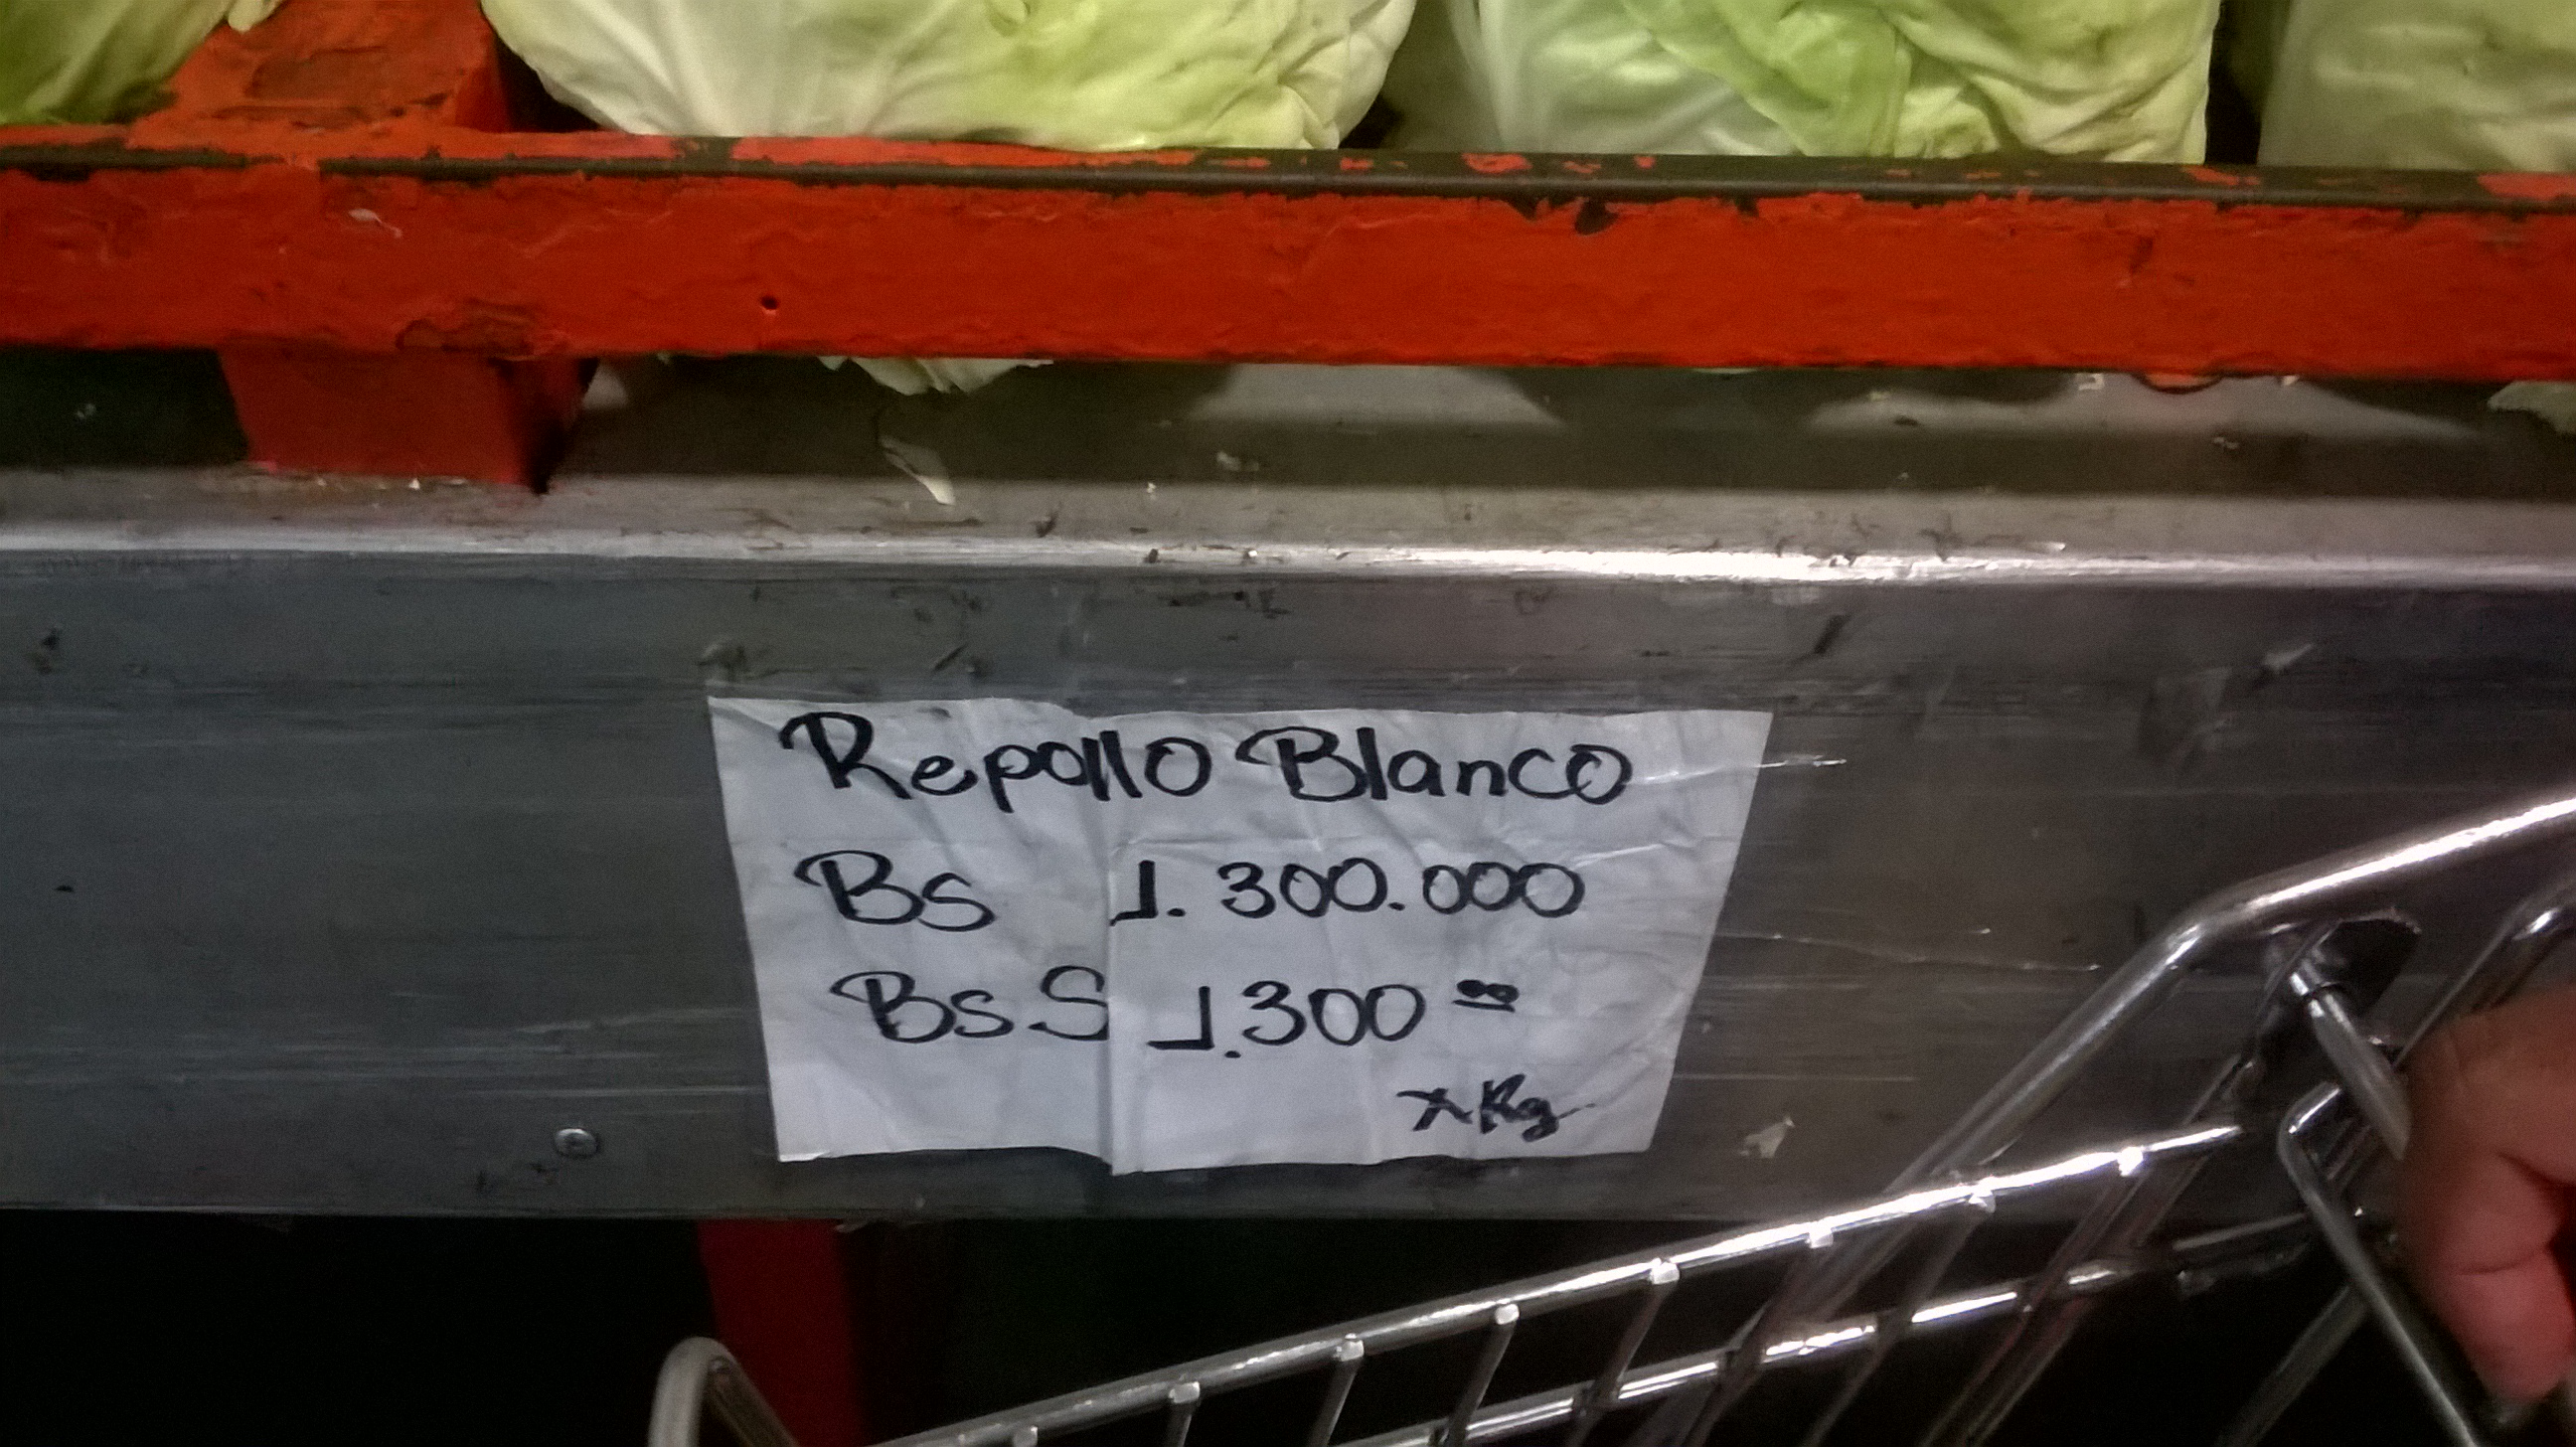 Repollo Blanco
Bs 1.300.000
BsS 1.300 00
x Kg